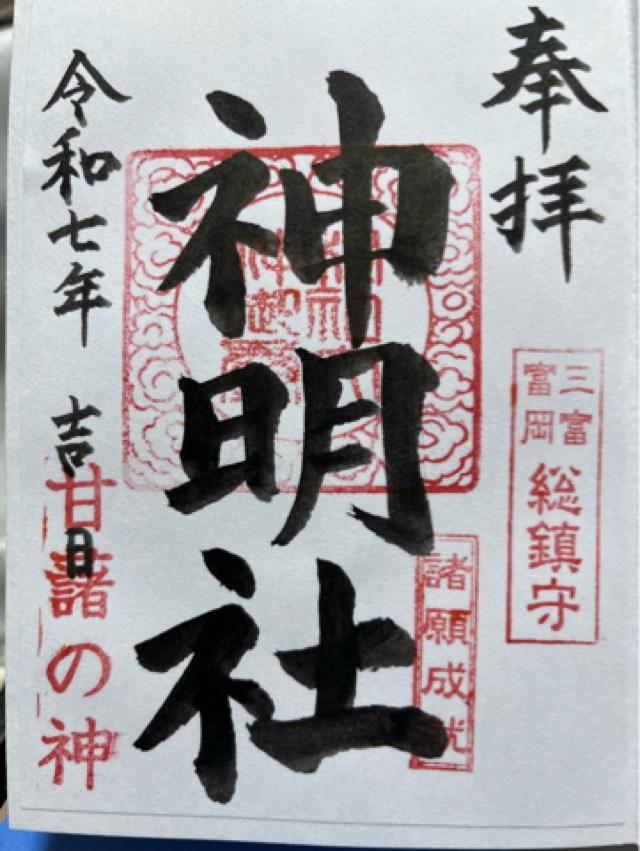 奉拝
三富
富岡
総鎮守
神明社
諸願成就
令和七年 吉日
甘藷の神